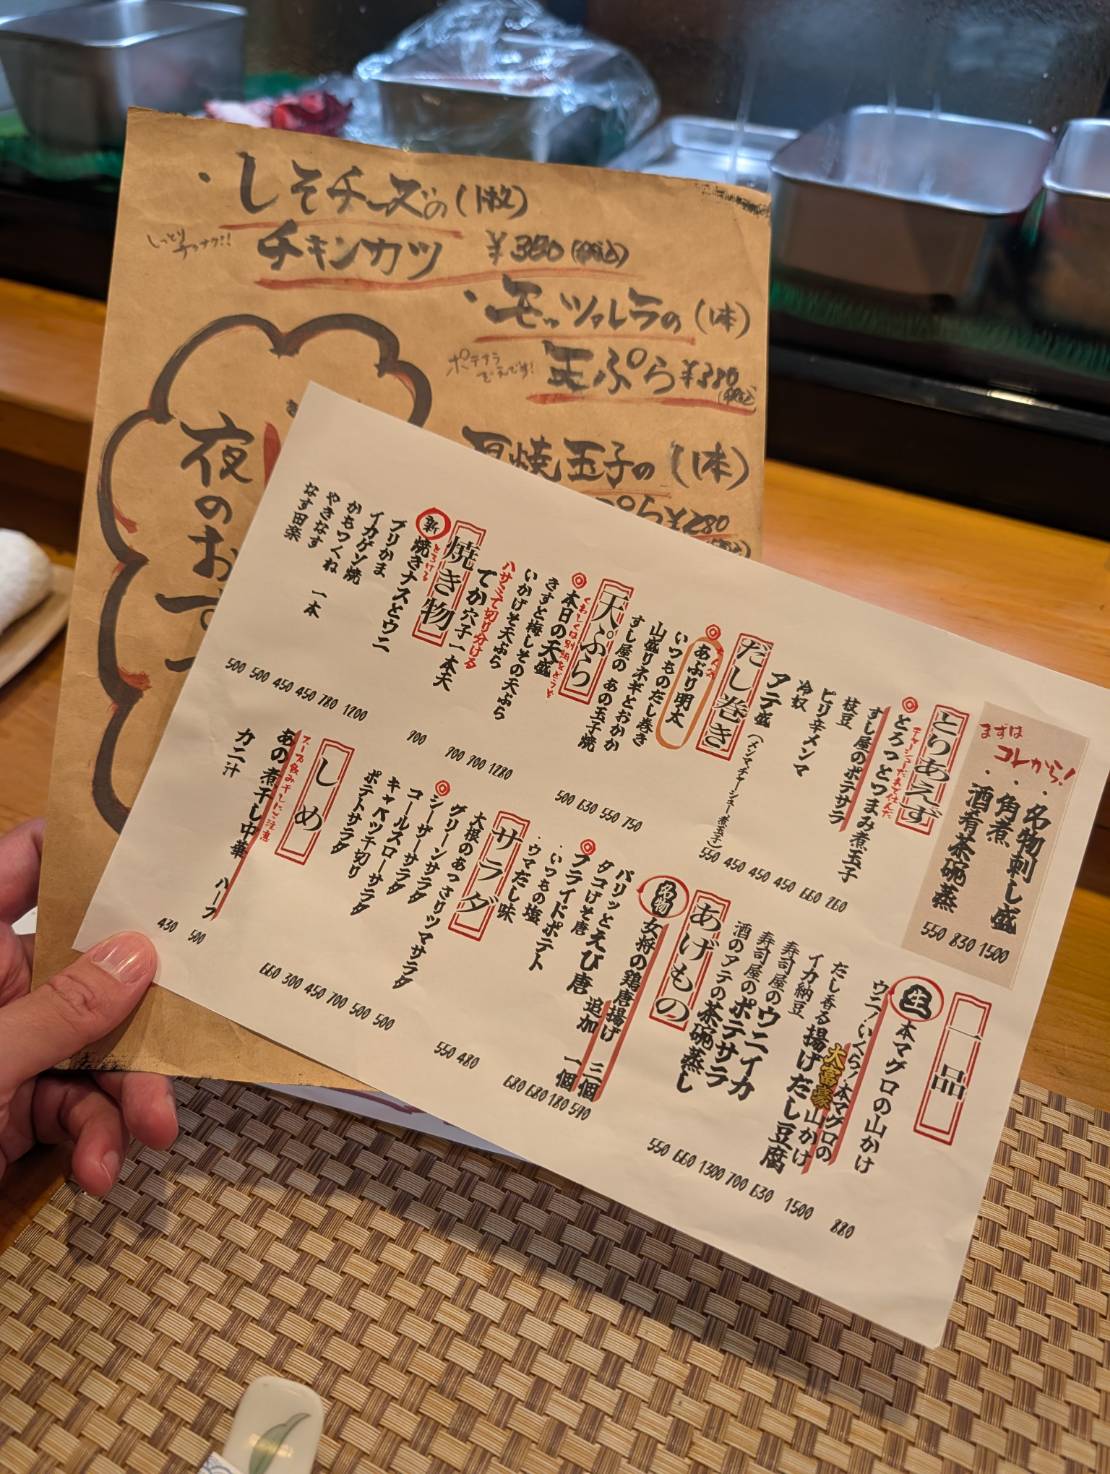 ・しそチーズの(1枚)
チキンカツ ¥380(税込)
・モッツァレラの(1本)
天ぷら ¥380
焼玉子の(1本)
ぷら ¥280
夜の
お
まずは
コレから!
・名物刺し盛
・角煮
・酒肴茶碗蒸
550 830 1500
とりあえず
とろっとつまみ煮玉子
すし屋のポテサラ
枝豆
ピリ辛メンマ
冷奴
アテ盛(メンマチャーシュー煮玉子)
550 450 450 450 660 260
だし巻き
あぶり明太
いつものだし巻き
山盛りネギとおかか
すし屋の あの玉子焼
500 630 550 750
天ぷら
本日の天盛
きすと梅しその天ぷら
いかげそ天ぷら
ハサミで切り分ける
てか穴子一本天
900 700 700 1280
焼き物
新
焼きナスとウニ
ブリかま
イカゲソ焼
かちわつくね 一本
やきなす
なす田楽
500 500 450 450 780 1200
一品
生
本マグロの山かけ
ウニ!いくら!本マグロの
大富豪山かけ
だし香る揚げだし豆腐
イカ納豆
寿司屋のウニイカ
寿司屋のポテサラ
酒のアテの茶碗蒸し
550 660 1300 700 630 1500 880
あげもの
名物
女将の鶏唐揚げ 三個
追加 一個
パリッとえび唐
タコげそ唐
フライドポテト
・いつもの塩
・ウマだし味
680 680 180 590
550 480
サラダ
大根のあっさりツマサラダ
グリーンサラダ
シーザーサラダ
コールスローサラダ
キャベツ千切り
ポテトサラダ
660 300 450 700 500 500
しめ
スープ飲み干しにご注意
あの煮干し中華 ハーフ
カニ汁
430 500